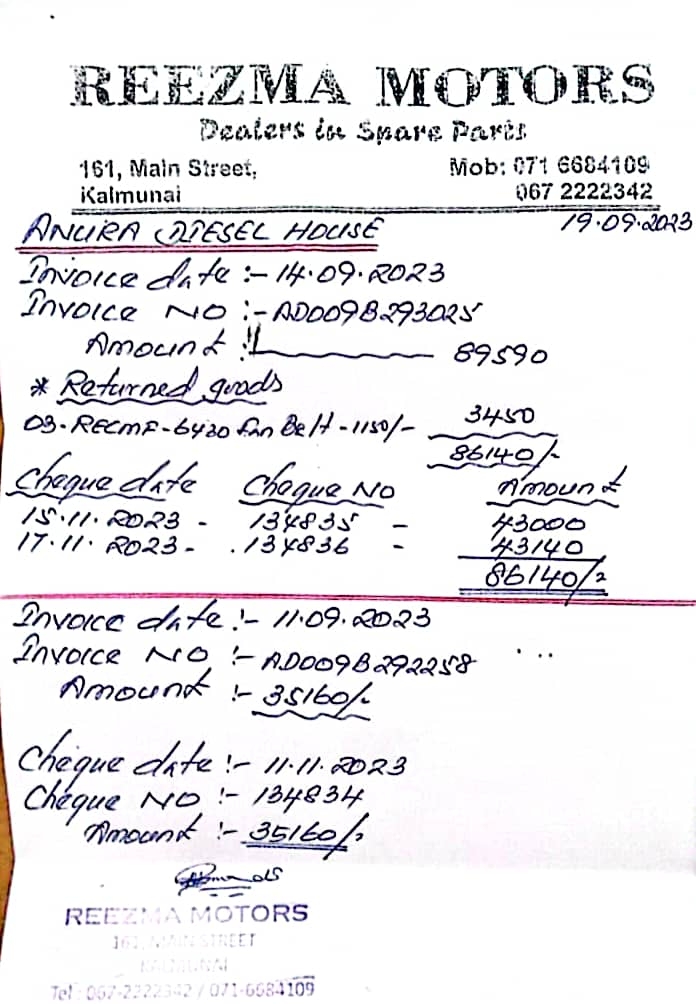 REEZMA MOTORS
Dealers in Spare Parts
161, Main Street, Mob: 071 6684109
Kalmunai 067 2222342
19.09.2023
ANURA DIESEL HOUSE
Invoice date :- 14.09.2023
Invoice NO :- AD009B293025
Amount :- 89590
* Returned goods
03-RECMF-6430 Fan Belt -1150/- 3450
86140/-
Cheque date Cheque NO Amount
15.11.2023 - 134835 - 43000
17.11.2023 - 134836 - 43140
86140/-
Invoice date :- 11.09.2023
Invoice NO :- AD009B292258
Amount :- 35160/-
Cheque date :- 11.11.2023
Cheque NO :- 134834
Amount :- 35160/-
REEZMA MOTORS
161, MAIN STREET
KALMUNAI
Tel : 067-2222342 / 071-6684109